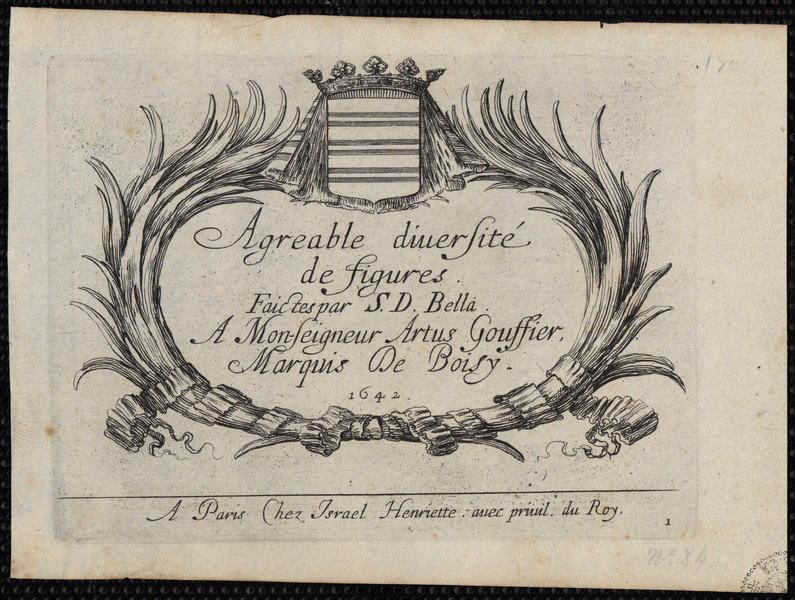 Agreable diuersité
de figures.
Faictes par S. D. Bella.
A Monseigneur Artus Gouffier,
Marquis De Boisy.
1642.
A Paris Chez Israel Henriette . auec priuil. du Roy.
1